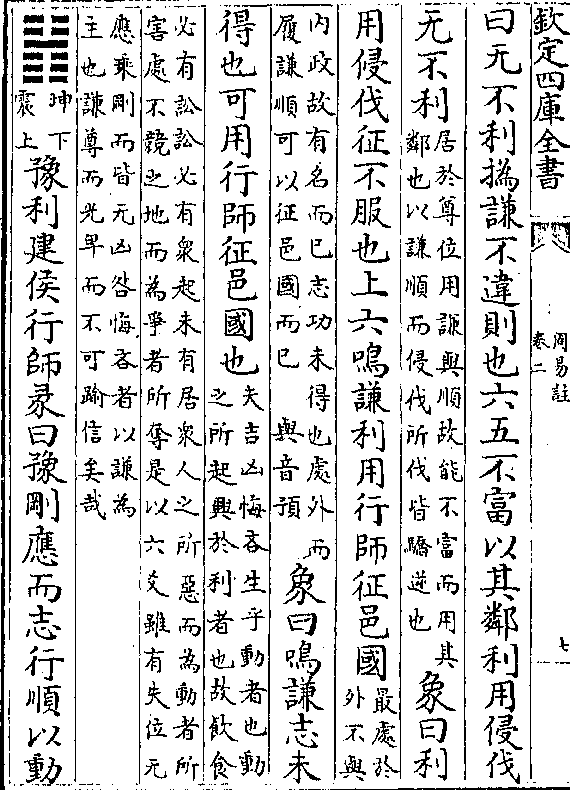 欽定四庫全書
周易註
卷二
七
曰无不利撝謙不違則也六五不富以其鄰利用侵伐
无不利
居於尊位用謙與順故能不富而用其
鄰也以謙順而侵伐所伐皆驕逆也
象曰利
用侵伐征不服也上六鳴謙利用行師征邑國
最處於
外不與
内政故有名而已志功未得也處外而
履謙順可以征邑國而已 與音預
象曰鳴謙志未
得也可用行師征邑國也
夫吉凶悔吝生乎動者也動
之所起興於利者也故飲食
必有訟訟必有衆起未有居衆人之所惡而為動者所
害處不競之地而為爭者所奪是以六爻雖有失位无
應乘剛而皆无凶咎悔吝者以謙為
主也謙尊而光卑而不可踰信矣哉
坤下
震上
豫利建侯行師彖曰豫剛應而志行順以動